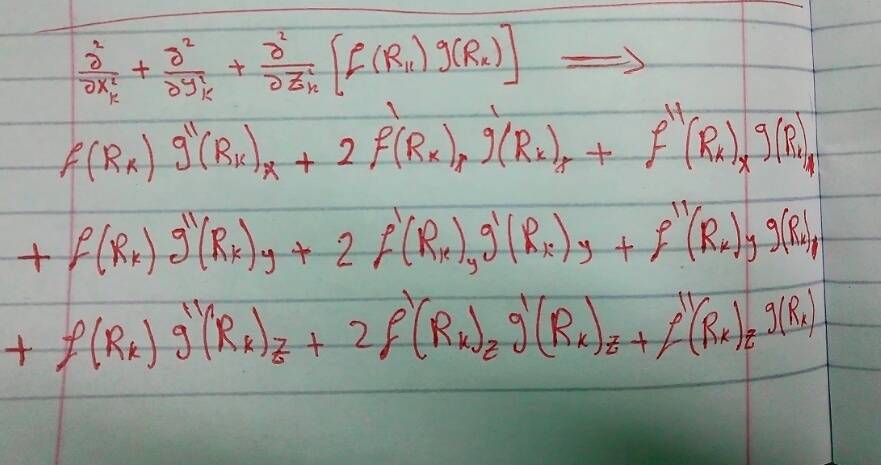 ∂²/∂x²ₖ + ∂²/∂y²ₖ + ∂²/∂z²ₖ [f(Rₖ) g(Rₖ)] ⟹
f(Rₖ) g''(Rₖ)ₓ + 2 f'(Rₖ)ₓ g'(Rₖ)ₓ + f''(Rₖ)ₓ g(Rₖ)ₓ
+ f(Rₖ) g''(Rₖ)y + 2 f'(Rₖ)y g'(Rₖ)y + f''(Rₖ)y g(Rₖ)
+ f(Rₖ) g''(Rₖ)z + 2 f'(Rₖ)z g'(Rₖ)z + f''(Rₖ)z g(Rₖ)